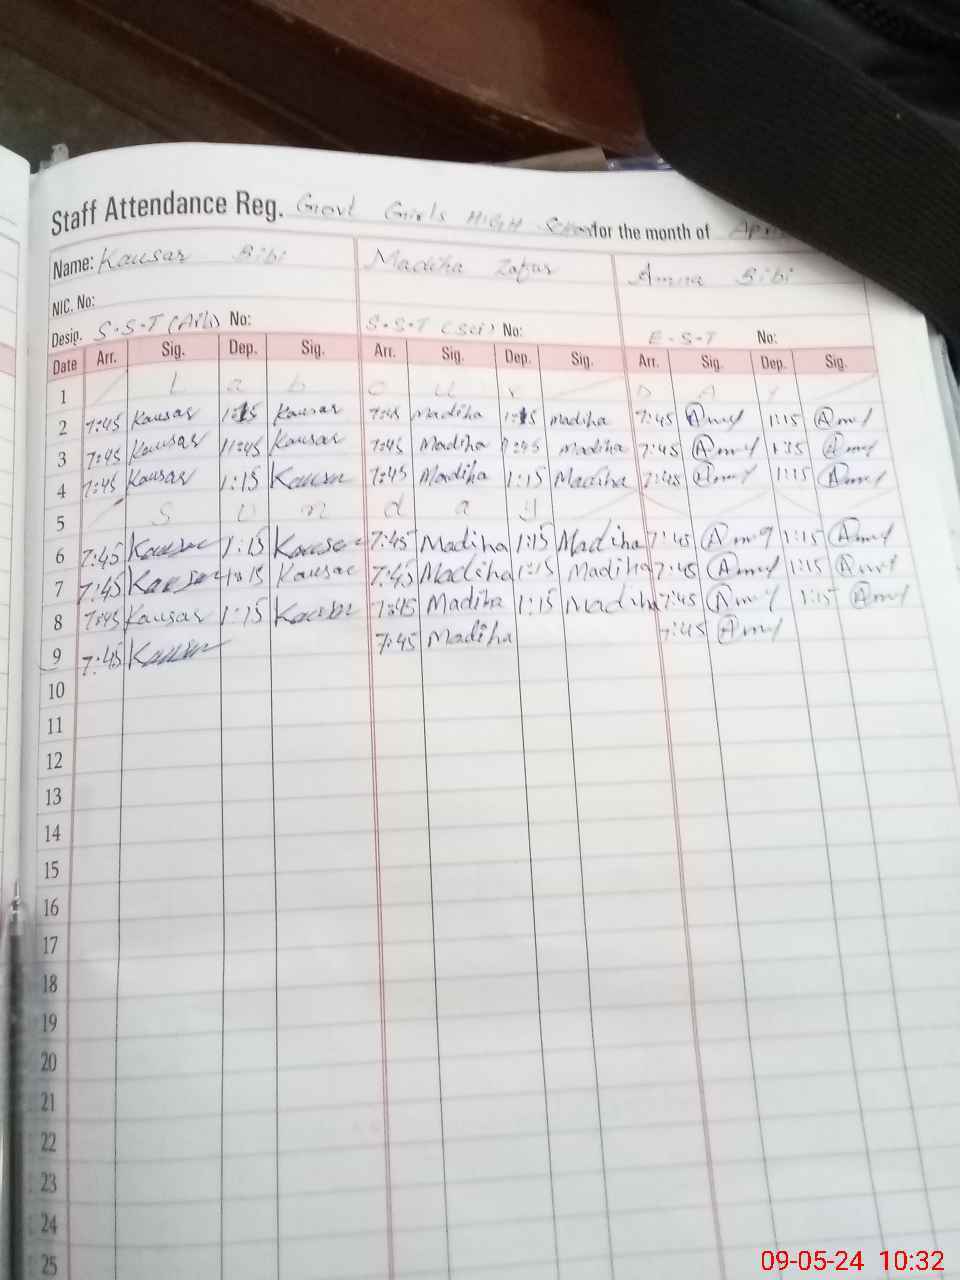 Staff Attendance Reg. Govt Girls HIGH for the month of
Name: Kausar Bibi Madiha Zafar Amna Bibi
NIC. No:
Desig. S.S.T (Arts) No: S.S.T (Sci) No: E.S.T No:
Date Arr. Sig. Dep. Sig. Arr. Sig. Dep. Sig. Arr. Sig. Dep. Sig.
1 L a b o u r D A Y
2 7:45 Kausar 1:15 Kausar 7:45 Madiha 1:15 Madiha 7:45 Amy 1:15 Amy
3 7:45 Kausar 11:45 Kausar 7:45 Madiha Madiha 7:45 Amy Amy
4 7:45 Kausar 1:15 Kausar 7:45 Madiha 1:15 Madiha 7:45 Amy 1:15 Amy
5 S u n d a y
6 7:45 Kausar 1:15 Kausar 7:45 Madiha 1:15 Madiha 7:45 Amy 1:15 Amy
7 7:45 Kausar 1:15 Kausar 7:45 Madiha 1:15 Madiha 7:45 Amy 1:15 Amy
8 7:45 Kausar 1:15 Kausar 7:45 Madiha 1:15 Madiha 7:45 Amy 1:15 Amy
9 7:45 Kausar 7:45 Madiha 7:45 Amy
10
11
12
13
14
15
16
17
18
19
20
21
22
23
24
25
09-05-24 10:32